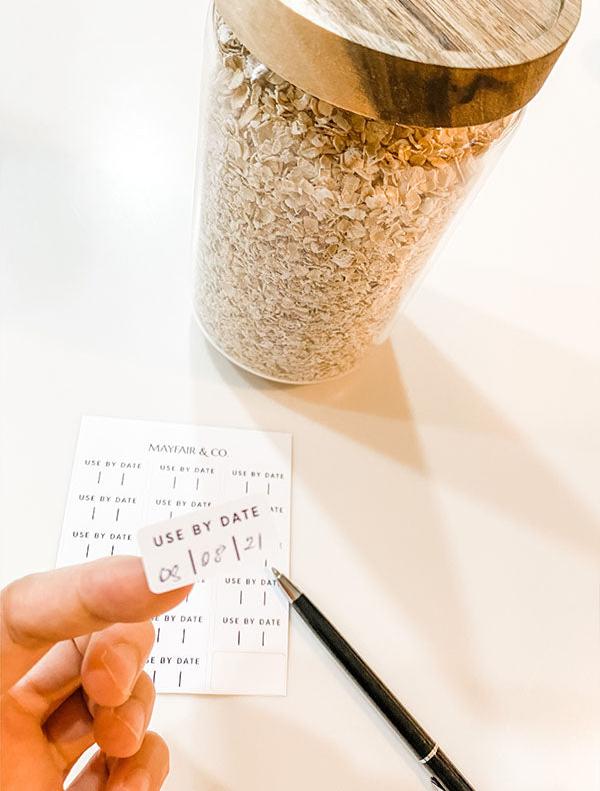 MAYFAIR & CO.
USE BY DATE USE BY DATE USE BY DATE
USE BY DATE USE BY DATE
USE BY DATE
USE BY DATE
08|08|21
USE BY DATE
BY DATE USE BY DATE
BY DATE